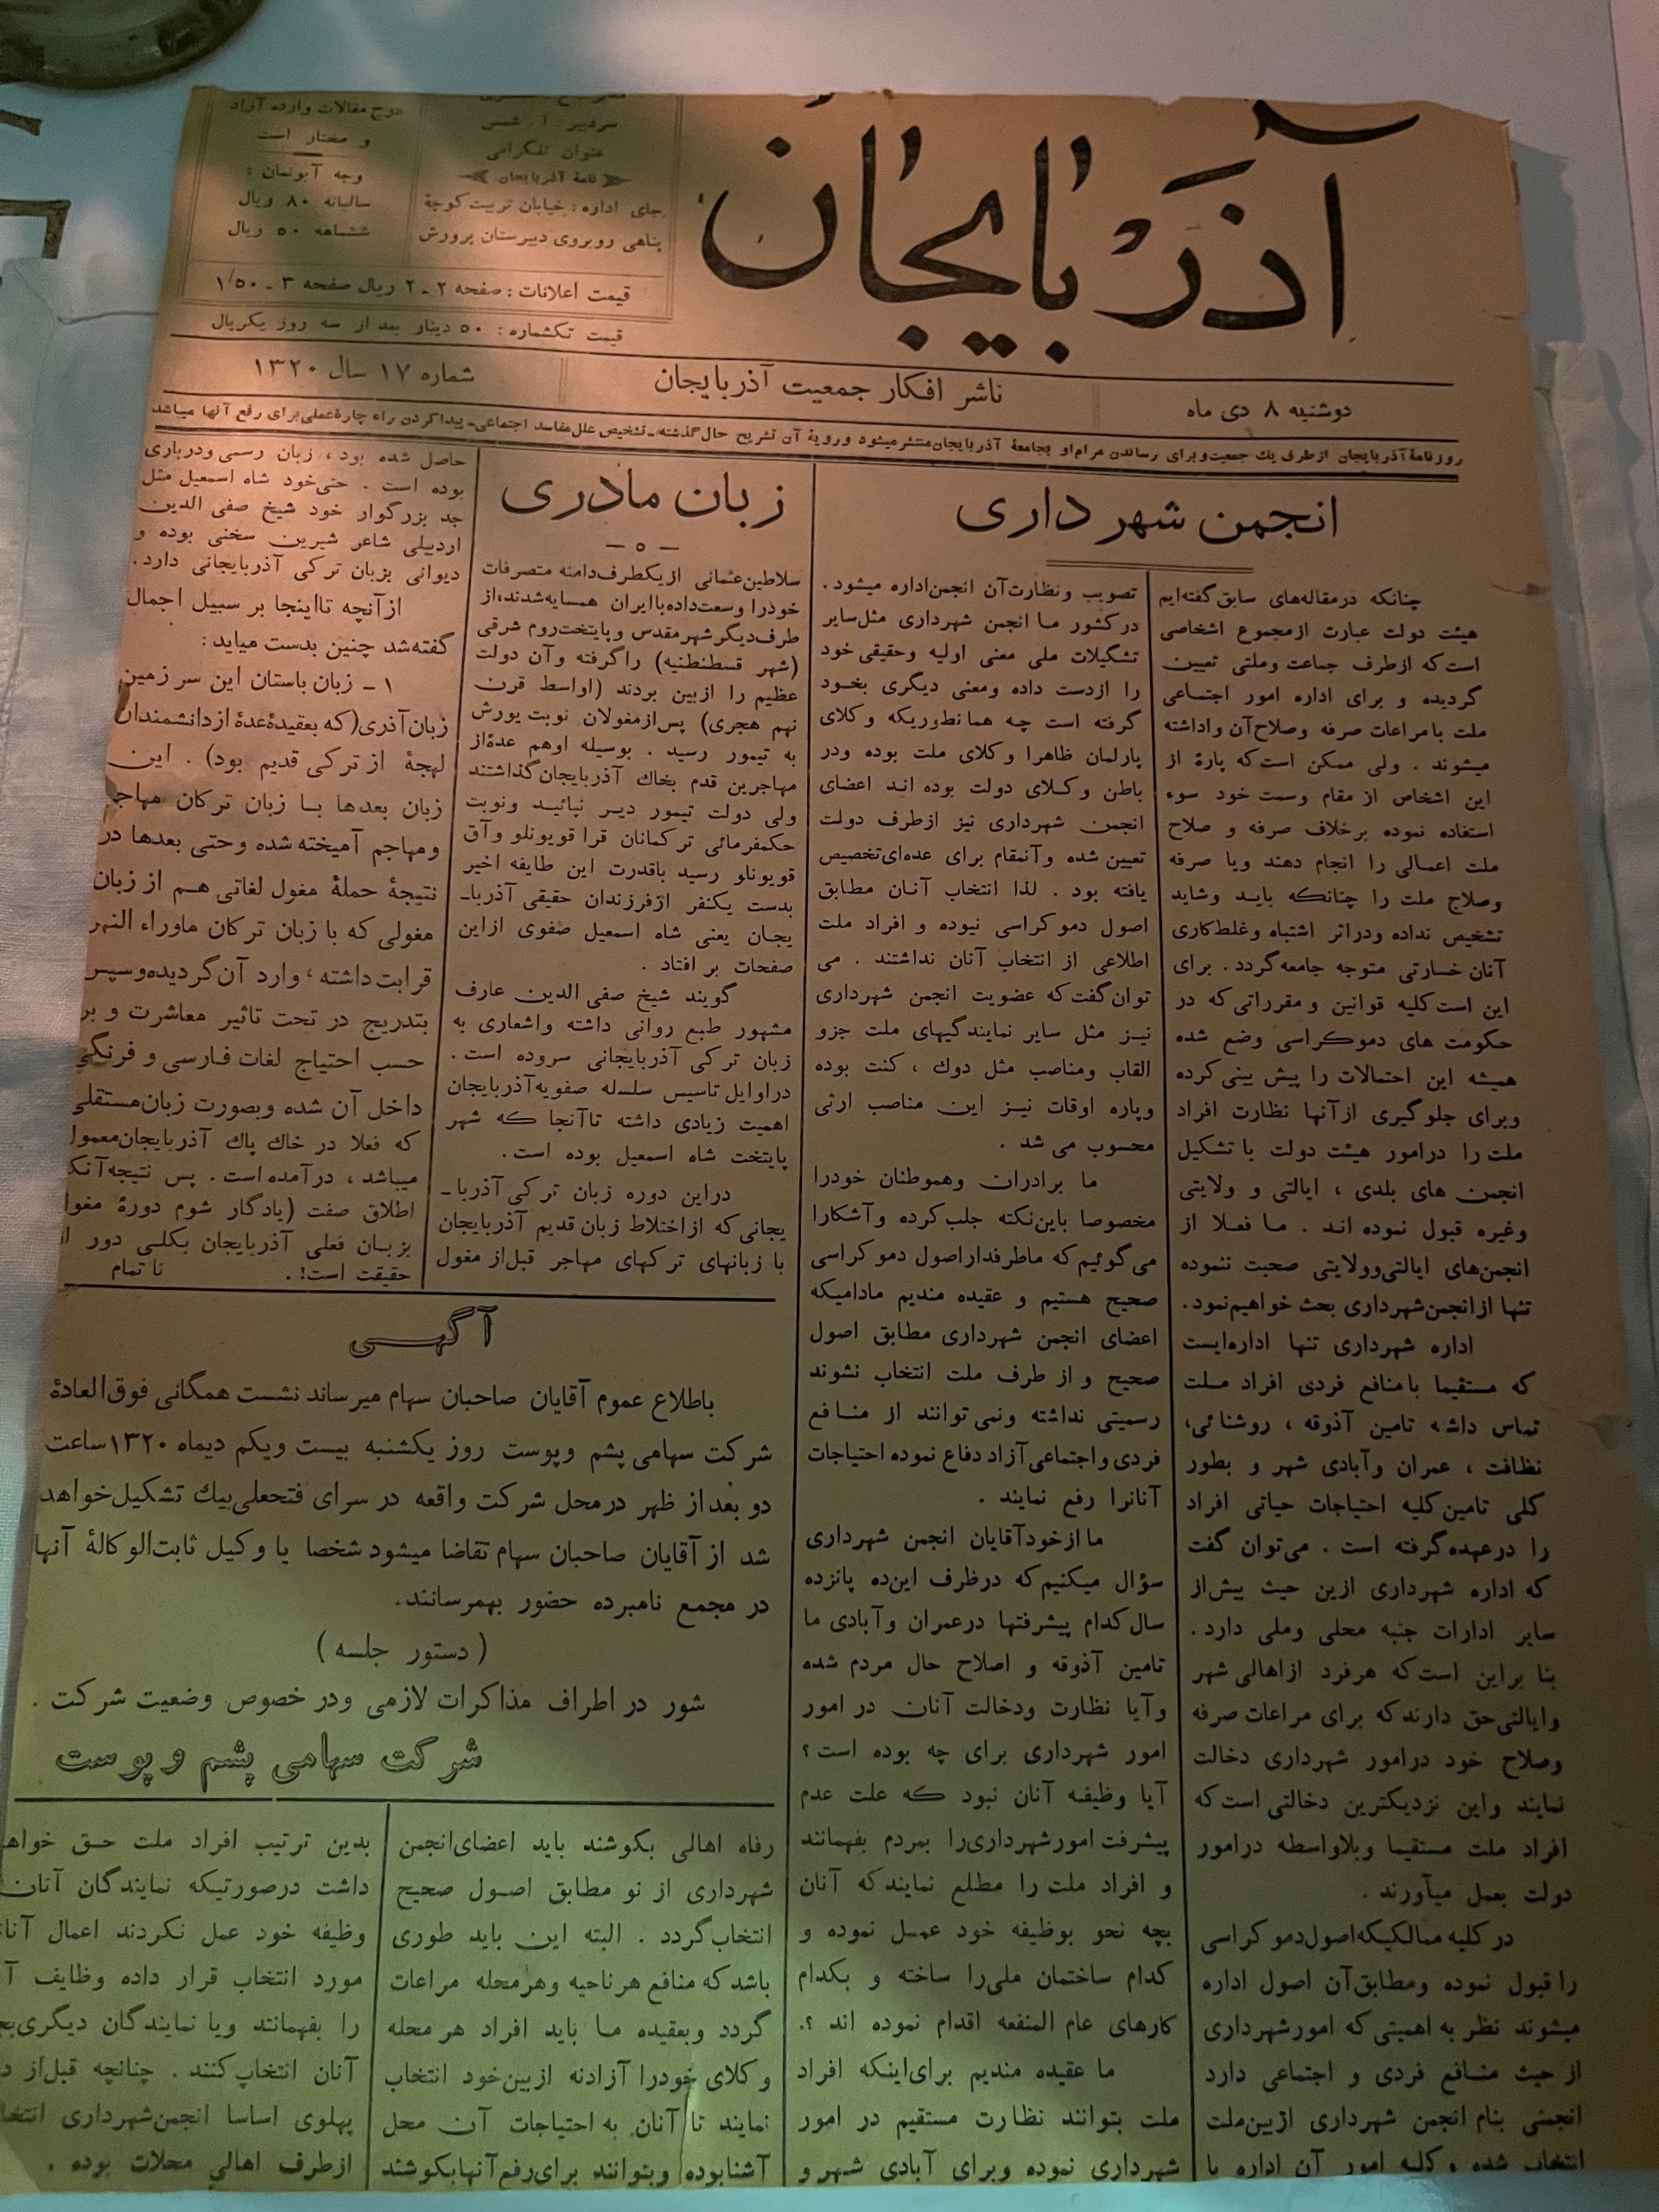 آذربایجان
سردبیر: ا. شمس
عنوان تلگرافی
نامهٔ آذربایجان
جای اداره: خیابان تربیت کوچهٔ
پناهی روبروی دبیرستان پرورش
درج مقالات وارده آزاد
و مختار است
وجه آبونمان:
سالیانه ۸۰ ریال
ششماهه ۵۰ ریال
قیمت اعلانات: صفحه ۲ـ۲ ریال صفحه ۳ ـ ۱/۵۰
قیمت تکشماره: ۵۰ دینار بعد از سه روز یکریال
دوشنبه ۸ دی ماه
ناشر افکار جمعیت آذربایجان
شماره ۱۷ سال ۱۳۲۰
روزنامهٔ آذربایجان از طرف یك جمعیت و برای رساندن مرام او بجامعهٔ آذربایجان منتشر میشود و رویهٔ آن تشریح حال گذشته ـ تشخیص علل مفاسد اجتماعی ـ پیدا کردن راه چارهٔ عملی برای رفع آنها میباشد
انجمن شهرداری
چنانکه درمقاله‌های سابق گفته‌ایم
هیئت دولت عبارت ازمجموع اشخاصی
است که ازطرف جماعت وملتی تعیین
گردیده و برای اداره امور اجتماعی
ملت بامراعات صرفه وصلاح‌آن واداشته
میشوند . ولی ممکن است که پارهٔ از
این اشخاص از مقام وسمت خود سوء
استفاده نموده برخلاف صرفه و صلاح
ملت اعمالی را انجام دهند ویا صرفه
وصلاح ملت را چنانکه باید وشاید
تشخیص نداده ودراثر اشتباه وغلط‌کاری
آنان خسارتی متوجه جامعه گردد. برای
این است کلیه قوانین و مقرراتی که در
حکومت های دموکراسی وضع شده
همیشه این احتمالات را پیش بینی کرده
وبرای جلوگیری ازآنها نظارت افراد
ملت را درامور هیئت دولت با تشکیل
انجمن های بلدی ، ایالتی و ولایتی
وغیره قبول نموده اند . ما فعلا از
انجمن‌های ایالتی وولایتی صحبت ننموده
تنها ازانجمن‌شهرداری بحث خواهیم‌نمود.
اداره شهرداری تنها اداره‌ایست
که مستقیما بامنافع فردی افراد ملت
تماس داشه تامین آذوقه ، روشنائی،
نظافت ، عمران وآبادی شهر و بطور
کلی تامین کلیه احتیاجات حیاتی افراد
را درعهده گرفته است . می‌توان گفت
که اداره شهرداری ازین حیث بیش‌از
سایر ادارات جنبه محلی وملی دارد.
بنا براین است که هرفرد ازاهالی شهر
وایالتی حق دارندکه برای مراعات صرفه
وصلاح خود درامور شهرداری دخالت
نمایند واین نزدیکترین دخالتی است که
افراد ملت مستقیما وبلاواسطه درامور
دولت بعمل میآورند .
در کلیه ممالکیکه اصول دموکراسی
را قبول نموده ومطابق آن اصول اداره
میشوند نظر به اهمیتی که امورشهرداری
از حیث منافع فردی و اجتماعی دارد
انجمنی بنام انجمن شهرداری ازبین‌ملت
انتخاب شده و کلیه امور آن اداره با
تصویب ونظارت‌آن انجمن‌اداره میشود.
درکشور ما انجمن شهرداری مثل‌سایر
تشگیلات ملی معنی اولیه وحقیقی خود
را ازدست داده ومعنی دیگری بخود
گرفته است چه همانطوریکه وکلای
پارلمان ظاهرا وکلای ملت بوده ودر
باطن وکلای دولت بوده اند اعضای
انجمن شهرداری نیز ازطرف دولت
تعیین شده وآنمقام برای عده‌ای‌تخصیص
یافته بود . لذا انتخاب آنان مطابق
اصول دموکراسی نبوده و افراد ملت
اطلاعی از انتخاب آنان نداشتند . می
توان گفت که عضویت انجمن شهرداری
نیز مثل سایر نمایندگیهای ملت جزو
القاب ومناصب مثل دوك ، کنت بوده
وپاره اوقات نیز این مناصب ارثی
محسوب می شد .
ما برادران وهموطنان خودرا
مخصوصا باین‌نکته جلب کرده وآشکارا
می‌گوئیم که ماطرفدار اصول دموکراسی
صحیح هستیم و عقیده مندیم مادامیکه
اعضای انجمن شهرداری مطابق اصول
صحیح و از طرف ملت انتخاب نشوند
رسمیتی نداشته ونمی توانند از منافع
فردی واجتماعی آزاد دفاع نموده احتیاجات
آنانرا رفع نمایند .
ما ازخودآقایان انجمن شهرداری
سؤال میکنیم که درظرف این‌ده پانزده
سال کدام پیشرفتها درعمران وآبادی ما
تامین آذوقه و اصلاح حال مردم شده
وآیا نظارت ودخالت آنان در امور
امور شهرداری برای چه بوده است؟
آیا وظیفه آنان نبود که علت عدم
پیشرفت امورشهرداری‌را بمردم بفهمانند
و افراد ملت را مطلع نمایندکه آنان
بچه نحو بوظیفه خود عمل نموده و
کدام ساختمان ملی‌را ساخته و بکدام
کارهای عام المنفعه اقدام نموده اند ؟.
ما عقیده مندیم برای‌اینکه افراد
ملت بتوانند نظارت مستقیم در امور
شهرداری نموده وبرای آبادی شهر و
رفاه اهالی بکوشند باید اعضای‌انجمن
شهرداری از نو مطابق اصول صحیح
انتخاب‌گردد . البته این باید طوری
باشدکه منافع هرناحیه وهرمحله مراعات
گردد وبعقیده ما باید افراد هرمحله
وکلای خودرا آزادنه ازبین‌خود انتخاب
نمایند تا آنان به احتیاجات آن محل
آشنابوده وبتوانند برای‌رفع آنهابکوشند
بدین ترتیب افراد ملت حق
داشت درصورتیکه نمایندگان آنان
وظیفه خود عمل نکردند اعمال
مورد انتخاب قرار داده وظایف
را بفهمانند ویا نمایندگان دیگری
آنان انتخاب‌کنند . چنانچه قبل‌از
پهلوی اساسا انجمن‌شهرداری
ازطرف اهالی محلات بوده .
زبان مادری
— ۵ —
سلاطین‌عثمانی ازیکطرف‌دامنه متصرفات
خودرا وسعت‌داده باایران همسایه‌شدند،از
طرف‌دیگر شهرمقدس وپایتخت‌روم شرقی
(شهر قسطنطنیه) راگرفته وآن دولت
عظیم را ازبین بردند (اواسط قرن
نهم هجری) پس‌ازمغولان نوبت یورش
به تیمور رسید . بوسیله اوهم عدهٔ‌از
مهاجرین قدم بخاك آذربایجان‌گذاشتند
ولی دولت تیمور دیر نپائید ونوبت
حکمفرمائی ترکمانان قراقویونلو وآق
قویونلو رسید باقدرت این طایفه اخیر
بدست یکنفر ازفرزندان حقیقی آذربا-
یجان یعنی شاه اسمعیل صفوی ازاین
صفحات بر افتاد .
گویند شیخ صفی الدین عارف
مشهور طبع روانی داشته واشعاری به
زبان ترکی آذربایجانی سروده است.
دراوایل تاسیس سلسله صفویه آذربایجان
اهمیت زیادی داشته تاآنجا که شهر
پایتخت شاه اسمعیل بوده است.
دراین دوره زبان ترکی آذربا-
یجانی که ازاختلاط زبان قدیم آذربایجان
با زبانهای ترکهای مهاجر قبل‌از مغول
حاصل شده بود ، زبان رسمی ودرباری
بوده است . حتی‌خود شاه اسمعیل مثل
جد بزرگوار خود شیخ صفی الدین
اردبیلی شاعر شیرین سخنی بوده و
دیوانی بزبان ترکی آذربایجانی دارد.
ازآنچه تااینجا بر سبیل اجمال
گفته‌شد چنین بدست میاید:
۱ ـ زبان باستان این سرزمین
زبان‌آذری (که بعقیدهٔ عدهٔ ازدانشمندان
لهجهٔ از ترکی قدیم بود) . این
زبان بعدها با زبان ترکان مهاجر
ومهاجم آمیخته شده وحتی بعدها در
نتیجهٔ حملهٔ مغول لغاتی هم از زبان
مغولی که با زبان ترکان ماوراء النهر
قرابت داشته، وارد آن گردیده وسپس
بتدریج در تحت تاثیر معاشرت و بر
حسب احتیاج لغات فارسی و فرنگی
داخل آن شده وبصورت زبان‌مستقلی
که فعلا در خاك پاك آذربایجان‌معمول
میباشد ، درآمده است. پس نتیجه
اطلاق صفت (یادگار شوم دورهٔ
بزبان فعلی آذربایجان بکلی دور از
حقیقت است!. نا تمام
آگهی
باطلاع عموم آقایان صاحبان سهام میرساند نشست همگانی فوق‌العادهٔ
شرکت سهامی پشم وپوست روز یکشنبه بیست ویکم دیماه ۱۳۲۰ ساعت
دو بعد از ظهر درمحل شرکت واقعه در سرای فتحعلی‌بیك تشکیل‌خواهد
شد از آقایان صاحبان سهام تقاضا میشود شخصا یا وکیل ثابت‌الوکالهٔ آنها
در مجمع نامبرده حضور بهمرسانند.
(دستور جلسه)
شور در اطراف مذاکرات لازمی ودر خصوص وضعیت شرکت .
شرکت سهامی پشم و پوست